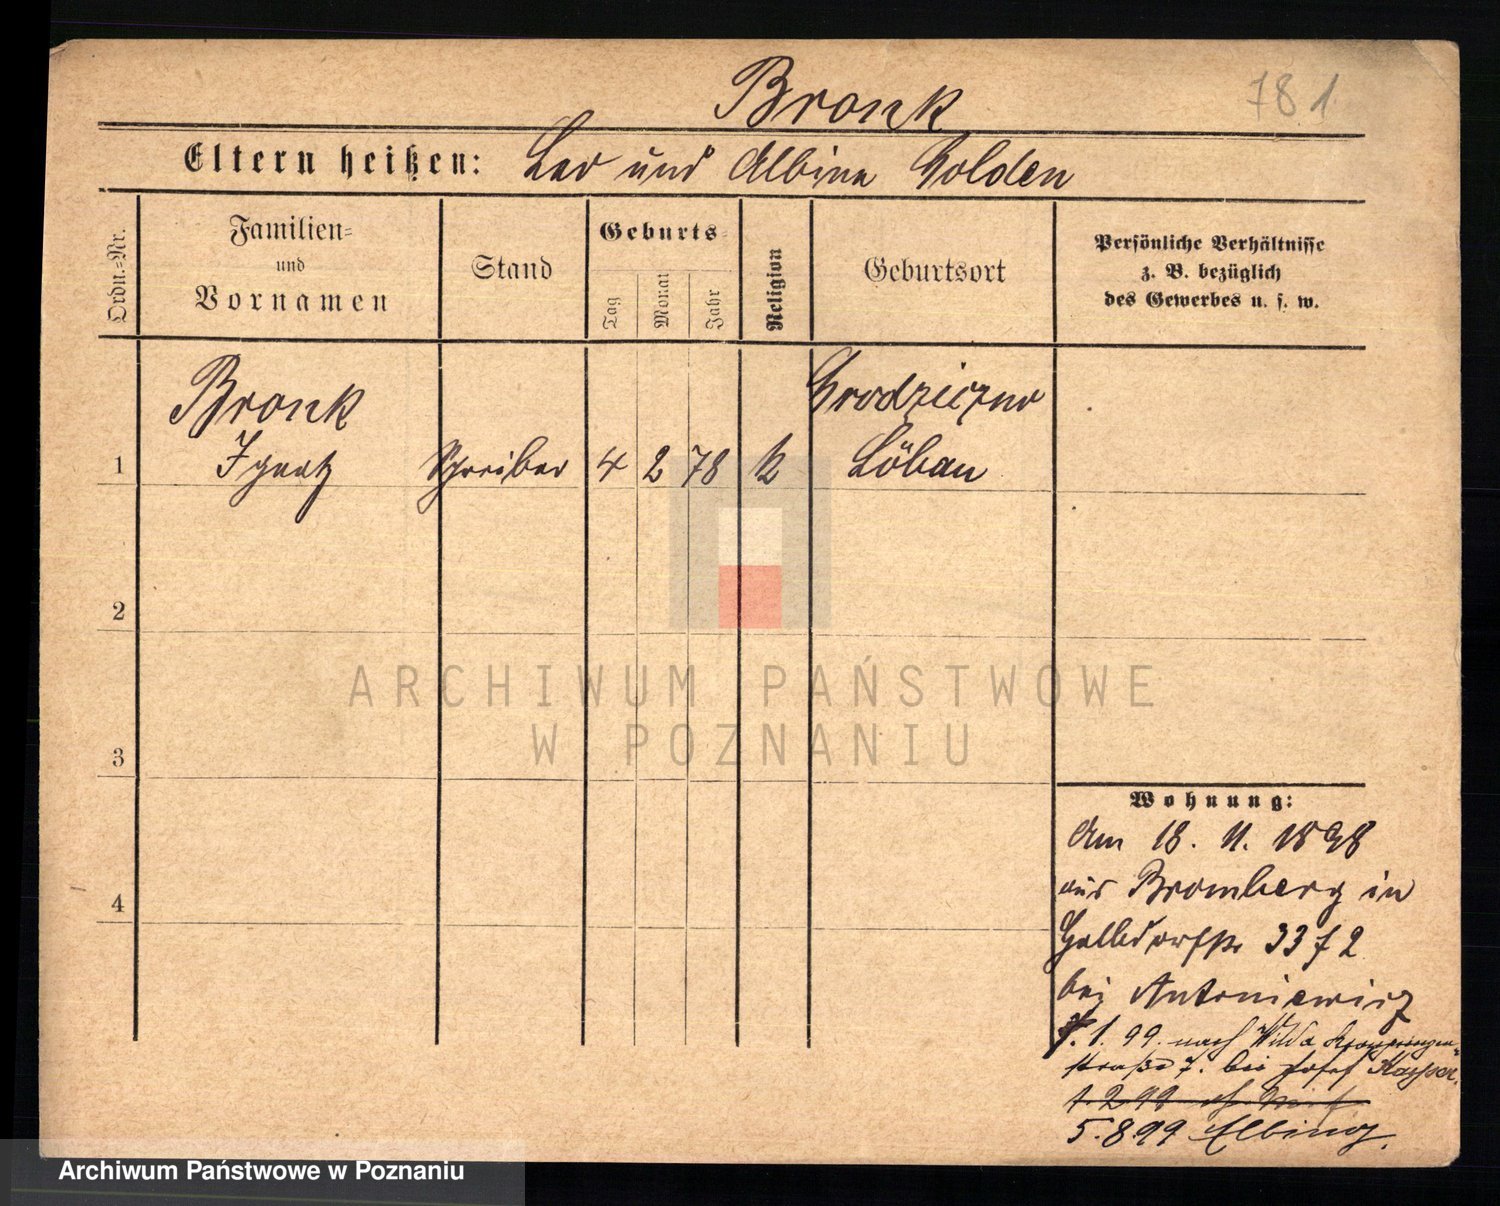 Bronk
781
Eltern heißen: Leo und Albine Golden
Ordn.-Nr.
Familien-
und
Vornamen
Stand
Geburts-
Tag
Monat
Jahr
Religion
Geburtsort
Persönliche Verhältnisse
z. B. bezüglich
des Gewerbes u. s. w.
Bronk
Grodziczno
1 Ignatz Schreiber 4 2 78 k Löbau
2
3
4
ARCHIWUM PAŃSTWOWE
W POZNANIU
Wohnung:
Am 18. 11. 1898
aus Bromberg in
33 f 2
bei Antoniewicz
1. 99. nach Wilda Kronprinzen-
straße 7. bei Josef Kayser.
5. 8 99 Elbing.
Archiwum Państwowe w Poznaniu